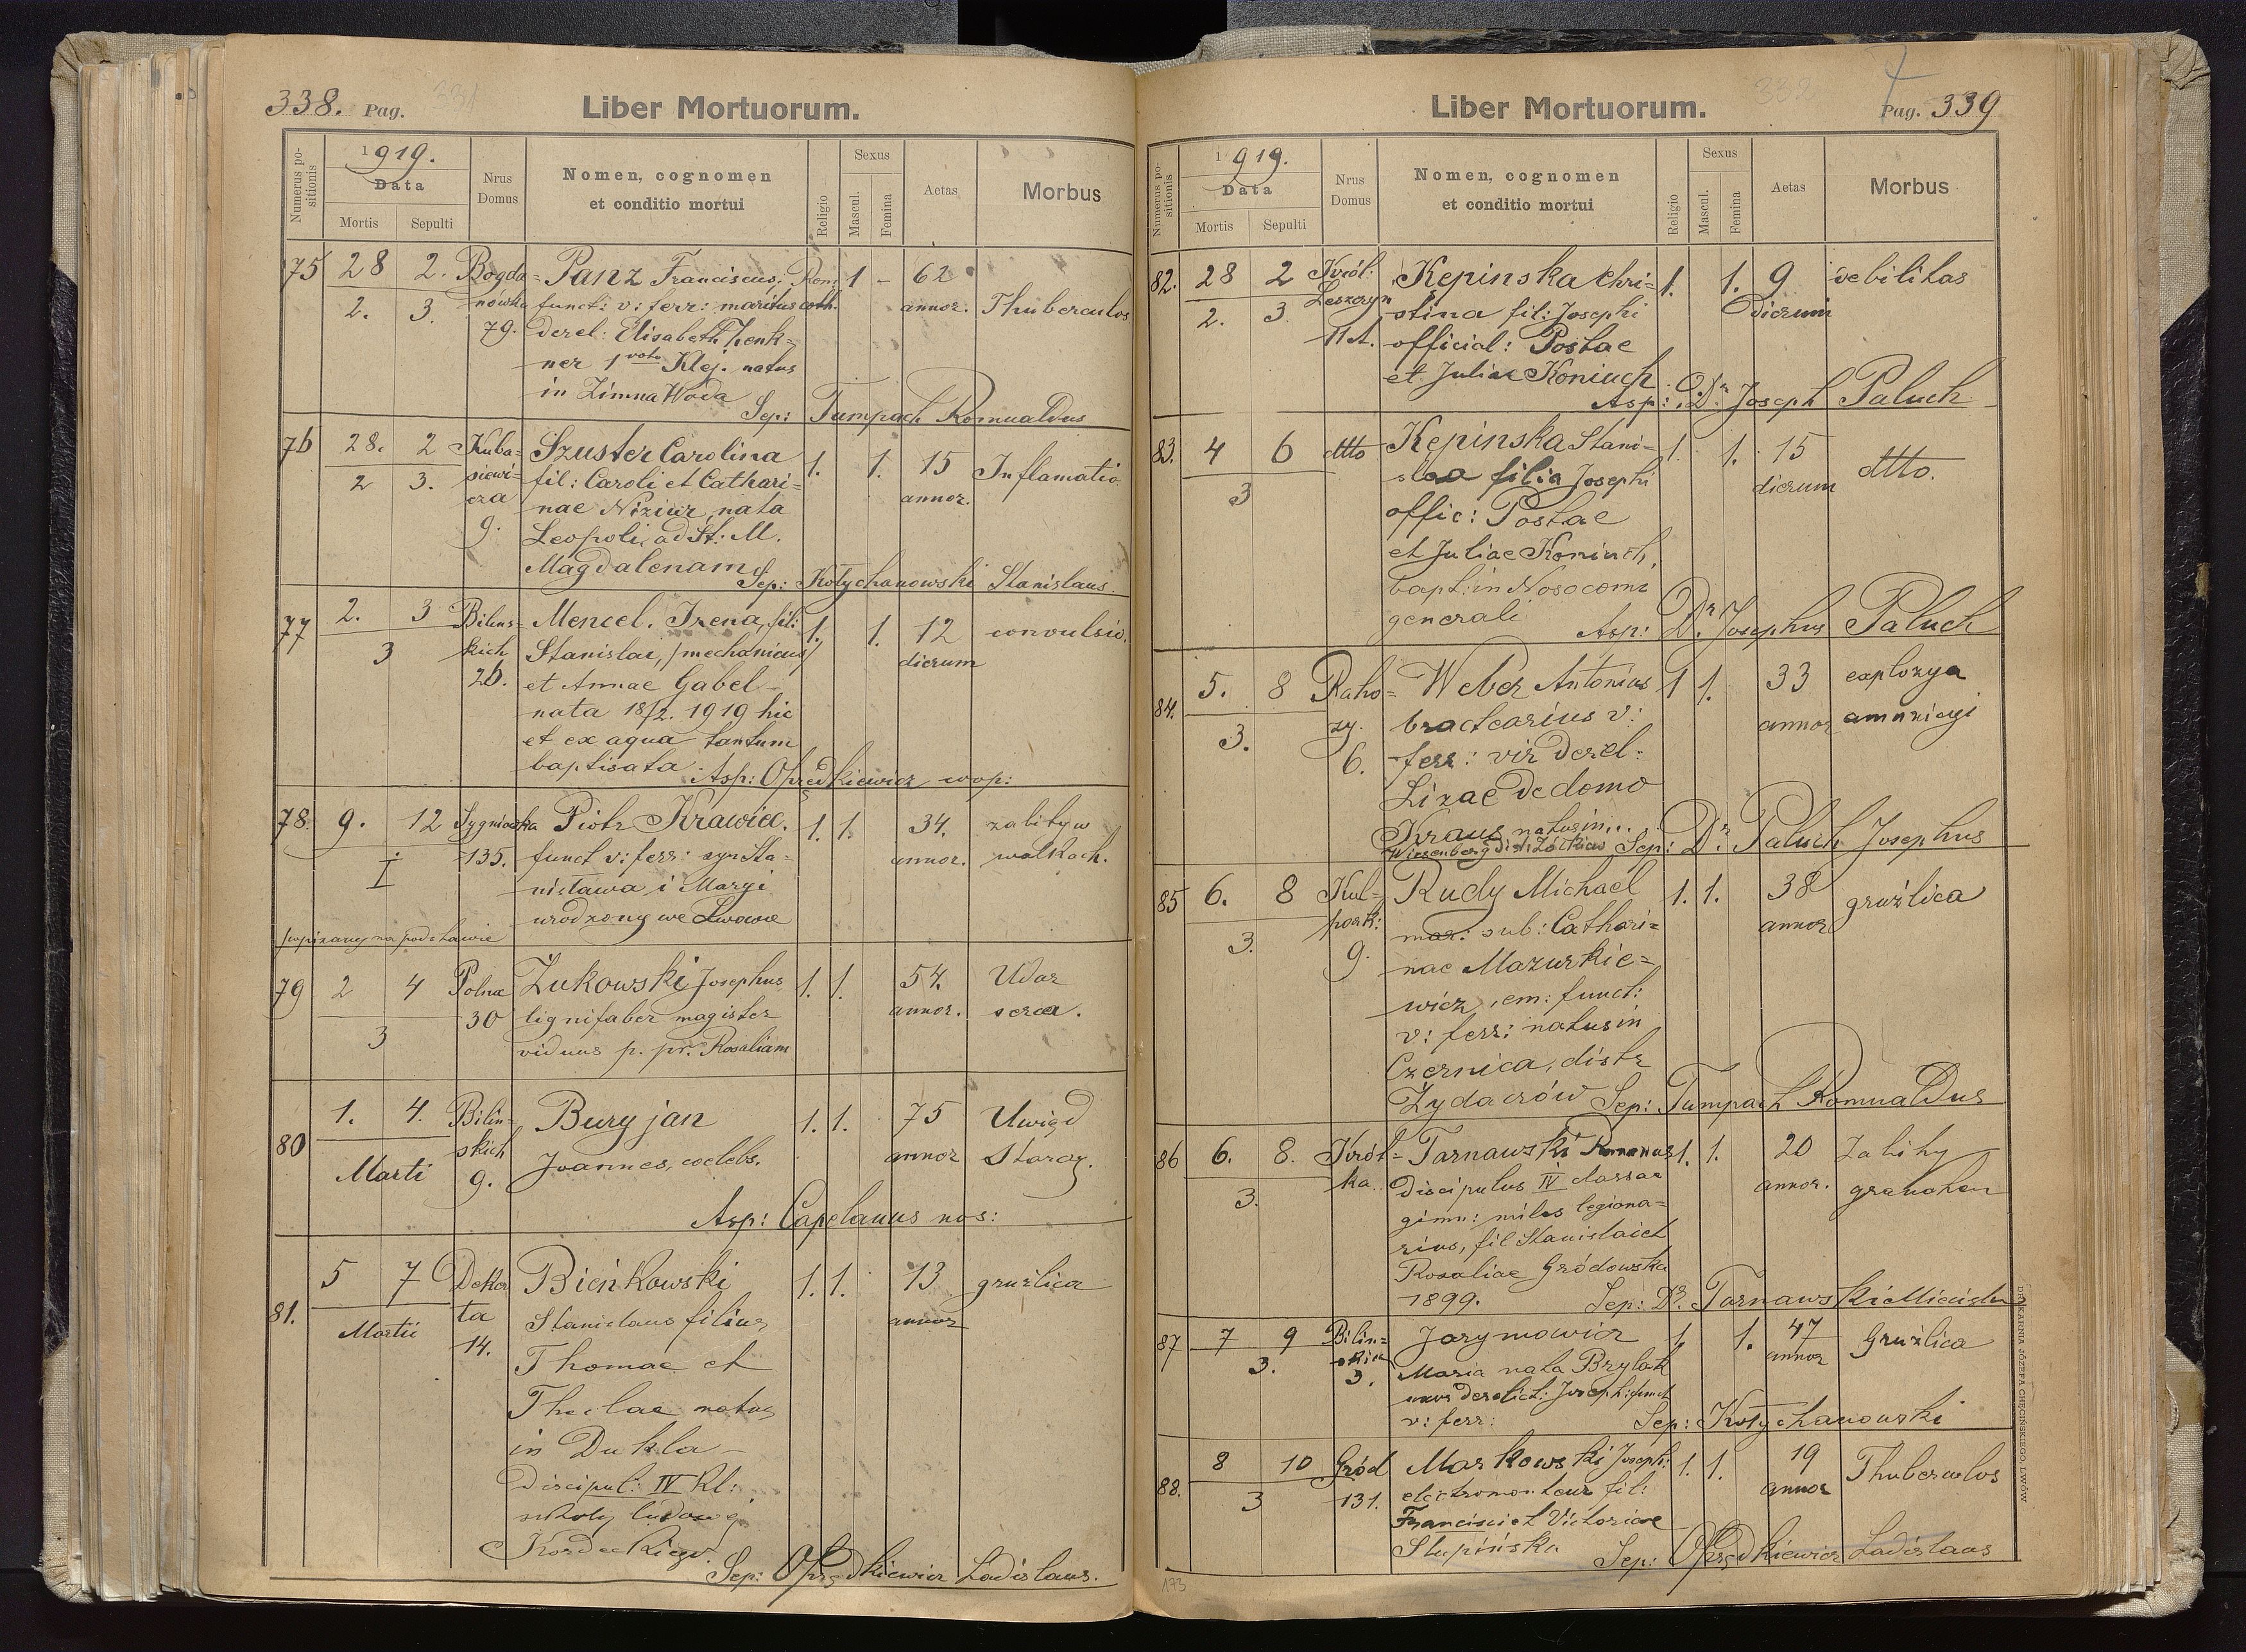 338. Pag. 331
Liber Mortuorum.
Numerus positionis
1919.
Data
Mortis
Sepulti
Nrus Domus
Nomen, cognomen
et conditio mortui
Religio
Sexus
Mascul.
Femina
Aetas
Morbus
75 28 2. Bogda= Panz Franciscus, Rom: 1 - 62
2. 3. nówka funct: v: ferr: maritus cath. annor. Thuberculos
79. derel: Elisabeth Zenk=
ner 1 voto Klej. natus
in Zimna Woda
Sep: Tumpach Romualdus
76 28. 2 Kuba= Szuster Carolina 1. 1. 15 Inflamatio
2 3. siewi= fil: Caroli et Cathari= annor.
cza nae Niziur, nata
9. Leopoli ad St: M.
Magdalenam
Sep: Kołychanowski Stanislaus.
77 2. 3 Bilins= Mencel. Irena, fil: 1. 1. 12 convulsio.
3 kich Stanislai, /mechanicus/ dierum
26. et Annae Gabel-
nata 18/2. 1919 hic
et ex aqua tantum
baptisata.
Asp: Opredkiewicz wop:
78. 9. 12 Sygniówka Piotr Krawiec. 1. 1. 34. zabity w
I 135. funct v: ferr: syn Sta- annor. walkach.
nisława i Maryi
urodzony we Lwowie
wpisany na podstawie
79 2 4 Polna Żukowski Josephus 1. 1. 54. Udar
3 30 lignifaber magister annor. serca.
viduus p. pr. Rosaliam
80 1. 4. Bilin- Bury jan 1. 1. 75 Uwiąd
Marti skich Joannes, coelebs. annor starcz.
9.
Asp: Capelanus nos:
81. 5 7 Deker Bieńkowski 1. 1. 13 gruźlica
Martii ta Stanislaus filius annor
14. Thomae et
Theclae natus
in Dukla -
Discipul: IV Kl:
szkoły ludowej
Kordeckiego.
Sep: Oprędkiewicz Ladislaus.
332
Pag. 339
Liber Mortuorum.
Numerus positionis
1919.
Data
Mortis
Sepulti
Nrus Domus
Nomen, cognomen
et conditio mortui
Religio
Sexus
Mascul.
Femina
Aetas
Morbus
82. 28 2 Król: Kępinska Chri= 1. 1. 9 debilitas
2. 3 Leszczyn stina fil: Josephi Dierum
11A. official: Postae
et Juliae Koniuch
Asp: Dr Joseph Paluch
83. 4 6 dtto Kępinska Stani= 1. 1. 15 dtto.
3 slaa filia Josephi dierum
offic: Postae
et Juliae Koniuch,
bapt: in Nosocom:
generali
Asp: Dr. Josephus Paluch
84. 5. 8 Raho= Weber Antonius 1 1. 33 explozya
3. zy. bractearius v: annor amunicyi
6. ferr: vir derel:
Lizae de domo
Kraus natus in...
Wiesenberg distr Żółkiew Sep: Dr. Paluch Josephus
85 6. 8 Kul= Rudy Michaël 1. 1. 38 gruźlica
3. park: mar: sub: Cathari= annor
9. nae Mazurkie=
wicz, em: funct:
v: ferr: natus in
Czernica, distr
Żydaczów Sep: Tumpach Romualdus
86 6. 8. Krót= Tarnawski Romanus 1. 1. 20 Zabity
3. ka. Discipulus IV classae annor. granatem
gimn: miles legiona=
rius, fil Stanislai et
Rosaliae Gródowska
1899. Sep: Dr. Tarnawski Miecisla
87 7 9 Bilin= Jarymowicz 1. 1. 47 Gruźlica
3. skich Maria nata Brylak annor
3. uxor derelict: Joseph: funct
v: ferr: Sep: Kołychanowski
88. 8 10 Gród Markowski Joseph: 1. 1. 19 Thuberculos
3 131. electromonteur fil: annor
Francisci et Victoriae
Słupińska Sep: Oprędkiewicz Ladislaus
173
DRUKARNIA JÓZEFA CHĘCIŃSKIEGO, LWÓW